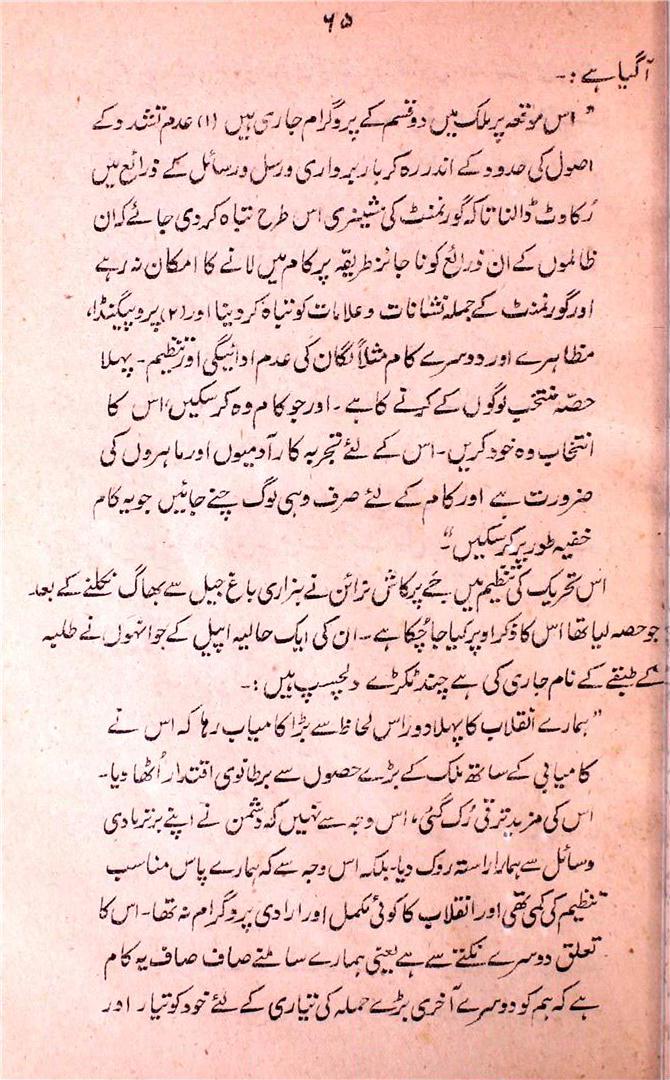 ۶۵
آگیا ہے :۔
" اس موقعہ پر ملک میں دو قسم کے پروگرام جاری ہیں (۱) عدم تشدد کے
اصول کی حدود کے اندر رہ کر باربرداری ورسل ورسائل کے ذرائع میں
رُکاوٹ ڈالنا تاکہ گورنمنٹ کی مشینری اس طرح تباہ کردی جائے کہ ان
ظالموں کے ان ذرائع کو ناجائز طریقہ پر کام میں لانے کا امکان نہ رہے
اور گورنمنٹ کے جملہ نشانات و علامات کو تباہ کردینا اور (۲) پروپیگنڈا،
مظاہرے اور دوسرے کام مثلاً لگان کی عدم ادائیگی اور تنظیم ۔ پہلا
حصّہ منتخب لوگوں کے کرنے کا ہے ۔ اور جو کام وہ کرسکیں، اس کا
انتخاب وہ خود کریں ۔ اس کے لئے تجربہ کار آدمیوں اور ماہروں کی
ضرورت ہے اور کام کے لئے صرف وہی لوگ چنے جائیں جو یہ کام
خفیہ طور پر کرسکیں "۔
اس تحریک کی تنظیم میں جے پرکاش نرائن نے ہزاری باغ جیل سے بھاگ نکلنے کے بعد
جو حصہ لیا تھا اس کا ذکر اوپر کیا جاچکا ہے ۔ ان کی ایک حالیہ اپیل کے جو انہوں نے طلبہ
کے طبقے کے نام جاری کی ہے چند ٹکڑے دلچسپ ہیں :۔
" ہمارے انقلاب کا پہلا دور اس لحاظ سے بڑا کامیاب رہا کہ اس نے
کامیابی کے ساتھ ملک کے بڑے حصوں سے برطانوی اقتدار اُٹھا دیا ۔
اس کی مزید ترقی رُک گئی، اس وجہ سے نہیں کہ دشمن نے اپنے برتر مادی
وسائل سے ہمارا راستہ روک دیا ۔ بلکہ اس وجہ سے کہ ہمارے پاس مناسب
تنظیم کی کمی تھی اور انقلاب کا کوئی مکمل اور ارادی پروگرام نہ تھا ۔ اس کا
تعلق دوسرے نکتے سے ہے یعنی ہمارے سامنے صاف صاف یہ کام
ہے کہ ہم کو دوسرے آخری بڑے حملہ کی تیاری کے لئے خود کو تیار اور